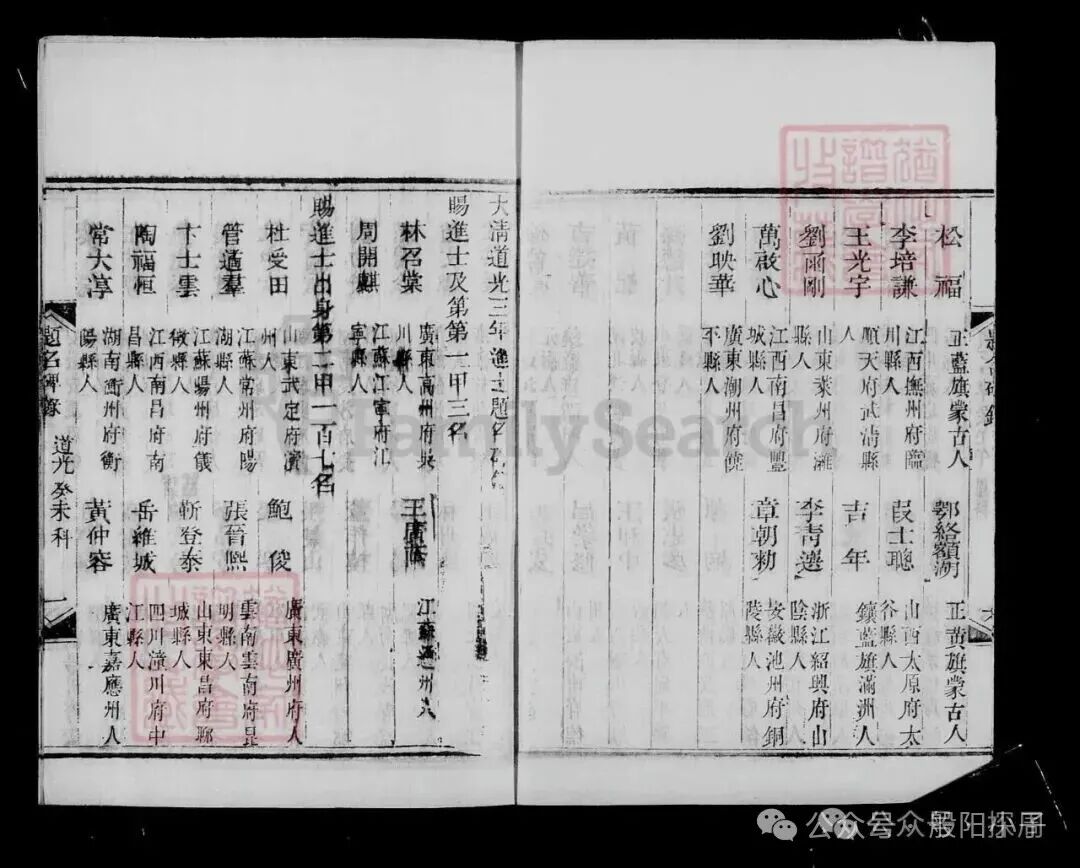 松福 正藍旗蒙古人 正黃旗蒙古人
李培謙 江西撫州府臨川縣人 段士聰 山西太原府太谷縣人
王光宇 順天府武清縣人 吉年 鑲藍旗滿洲人
劉函剛 山東萊州府濰縣人 李青選 浙江紹興府山陰縣人
萬啟心 江西南昌府豐城縣人 章朝勑 安徽池州府銅陵縣人
劉映華 廣東潮州府饒平縣人
大清道光三年進士題名碑錄
賜進士及第第一甲三名
林召棠 廣東高州府吳川縣人 王廣蔭 江蘇通州人
周開麒 江蘇江寧府江寧縣人
賜進士出身第二甲一百七名
杜受田 山東武定府濱州人 鮑俊 廣東廣州府人
管遹羣 江蘇常州府陽湖縣人 張晉熙 雲南雲南府昆明縣人
卞士雲 江蘇揚州府儀徵縣人 靳登泰 山東東昌府聊城縣人
陶福恒 江西南昌府南昌縣人 岳維城 四川潼川府中江縣人
常大淳 湖南衡州府衡陽縣人 黃仲容 廣東嘉應州人
題名碑錄 道光癸未科 一
FamilySearch
公众号·般阳探寻